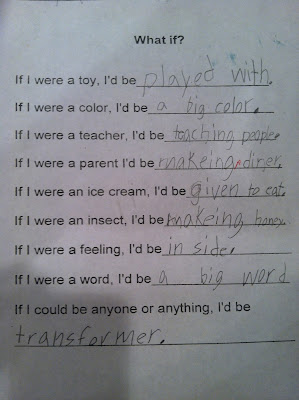 What if?
If I were a toy, I'd be played with.
If I were a color, I'd be a big color.
If I were a teacher, I'd be teaching people.
If I were a parent I'd be makeing diner.
If I were an ice cream, I'd be given to eat.
If I were an insect, I'd be makeing honey.
If I were a feeling, I'd be in side.
If I were a word, I'd be a big word
If I could be anyone or anything, I'd be
transformer.